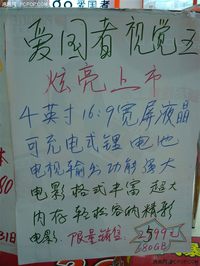 爱国者视觉王
炫亮上市
4英寸16:9宽屏液晶
可充电式锂电池
电视输出功能强大
电影格式丰富 超大
内存轻松容纳精彩
电影. 限量销售 2599元